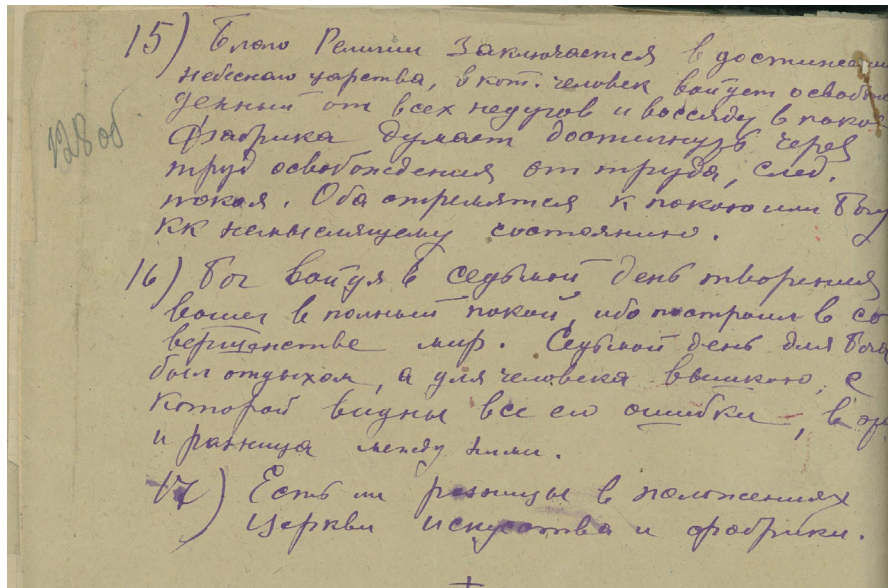 15) Благо Религии Заключается в достижении
небеснаго царства, в кот. человек войдет освобож
денный от всех недугов и воссяду в покое
Фабрика думает достигнуть через
труд освобождения от труда, след.
покоя. Оба стремятся к покою или Богу
128 об
кк немыслящему состоянию.
16) Бог войдя в седьмой день творения
вошел в полный покой, ибо построил в со
вершенстве мир. Седьмой день для Бога
был отдыхом, а для человека вышкою, с
которой видны все его ошибки, в
и разница между ними.
17) Есть ли разницы в положениях
Церкви искусства и фабрики.